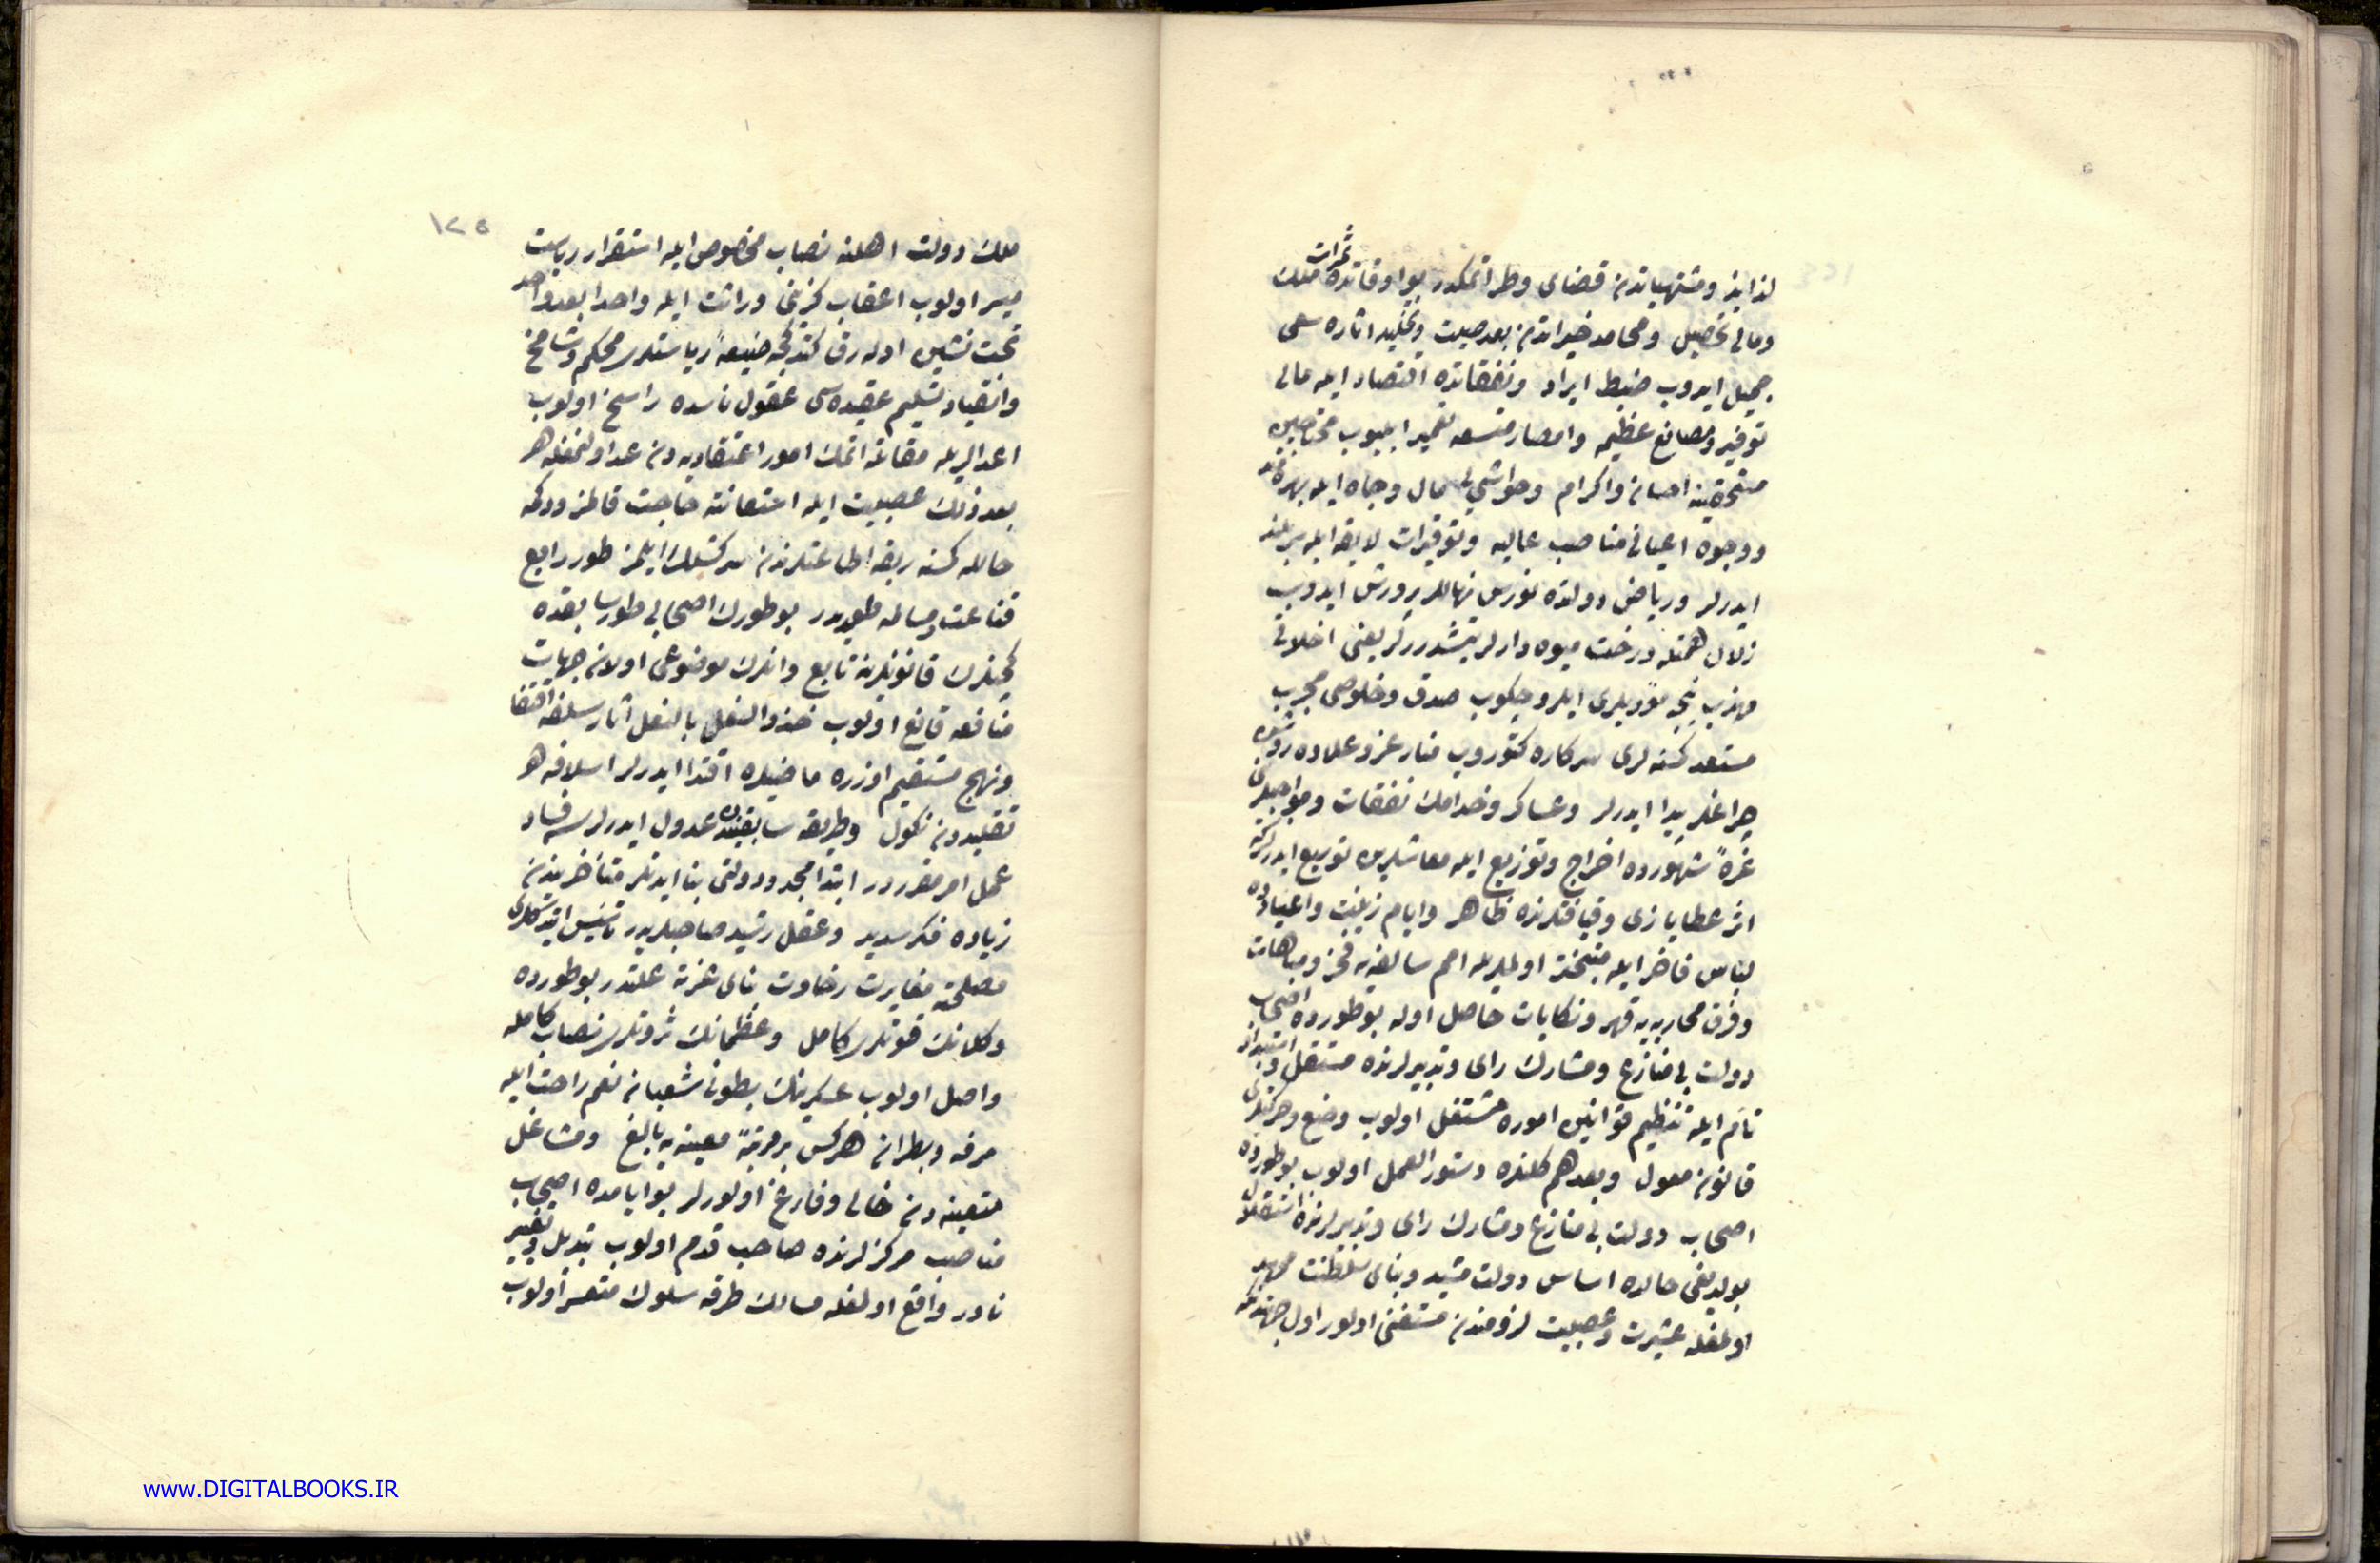 لذايذ ومشتهياتدن قضاى وطر اتمكدر بو اوقاتده ثمرات ملك
ومالى تحصيل ومحامد خيراتدن بعد صيت وتخليد اثاره سعى
جميل ايدوب ضبط ايراد ونفقاتده اقتصاد ايله مالى
توفير ومصانع عظيمه وامصار متسعه تعمير ايليوب محتاجين
مستحقينه احسان واكرام وحواشى‌يى مال وجاه ايله بهره‌مند
ووجوه اعيانى مناصب عاليه وتوقيرات لايقه ايله سربلند
ايدرلر ورياض دولتده نورس نهاللر پرورش ايدوب
زلال همتله درخت ميوه‌دارلر يتشدررلر يعنى اخلاقى
مهذب نيجه مؤدبلرى ايلرو چكوب صدق وخلوصى مجرب
مستعد كسنه‌لرى سركاره كتوروب منار عز وعلاده روشن
چراغلر پيدا ايدرلر وعساكر وخدامك نفقات ومواجبلرين
غرهٔ شهورده اخراج وتوزيع ايله معاشلرين توسيع ايدرلركه
اثر عطايا زى وقيافتلرنده ظاهر وايام زينت واعيادده
لباس فاخر ايله متبختر اولمالريله امم سالفه‌يه فخر ومباهات
وفرق محاربه‌يه قهر ونكايات حاصل اوله بو طورده اصحاب
دولت بى منازع ومشارك راى وتدبيرلرنده مستقل واستبداد
تام ايله تنظيم قوانين اموره مشتغل اولوب وضع وحركتلرى
قانون معول وبعدهم كلنده دستور العمل اولوب بو طورده
اصحاب دولت بى منازع ومشارك راى وتدبيرلرنده استقلال
بولديغى حالده اساس دولت مشيد وبناى سلطنت ممهد
اولمغله عشيرت وعصبيت لزومندن مستغنى اولور اول جهتدنكه
١٢٥
ملك دولت اهلنه نصاب مخصوص ايله استقرار رياست
ميسر اولوب اعقاب كزينى وراثت ايله واحدا بعد واحد
تخت نشين اوله‌رق كتدكجه رياستلرى محكم وشامخ
وانقياد وتسليم عقيده‌سى عقول ناسده راسخ اولوب
اعداليريله مقاتله اتمك امور اعتقاديه‌دن عد اولنمغله هر
بعد ذلك عصبيت ايله استعانته حاجت قالمز ودكمه
حالله كسنه ربقه اطاعتلرندن سركشلك ايلمز طور رابع
قناعت ومسالمه طوريدر بو طورك اصحابى طور سابقده
كچنلرك قانونلرينه تابع وانلرك موضوعى اولان جهات
منافعه قانع اولوب حذو النعل بالنعل اثار سلفه اقتفا
ونهج مستقيم اوزره ماضيلره اقتدا ايدرلر اسلافه هر
تقليددن نكول وطريقه سابقيندن عدول ايدرلرسه فساد
عمل امر مقرردر ابتدا مجد ودولتى بنا ايدنلر متأخريندن
زياده فكر سديد وعقل رشيد صاحبلريدر تأسيس ايتدكلرى
مصلحته مغايرت رخاوت بناى عزته علتدر بو طورده
وكلانك قوتلرى كامل وعظمانك ثروتلرى نصاب كامله
واصل اولوب عسكرينك بطونى شعبان نعم راحت ايله
مرفه وبطران هركس بر مرتبهٔ معينه‌يه بالغ ومشاغل
متعبه‌دن خالى وفارغ اولورلر بو ايامده اصحاب
مناصب مركزلرنده صاحب قدم اولوب تبديل وتغيير
نادر واقع اولمغله مسالك طرقه سلوك متعسر اولوب
www.DIGITALBOOKS.IR